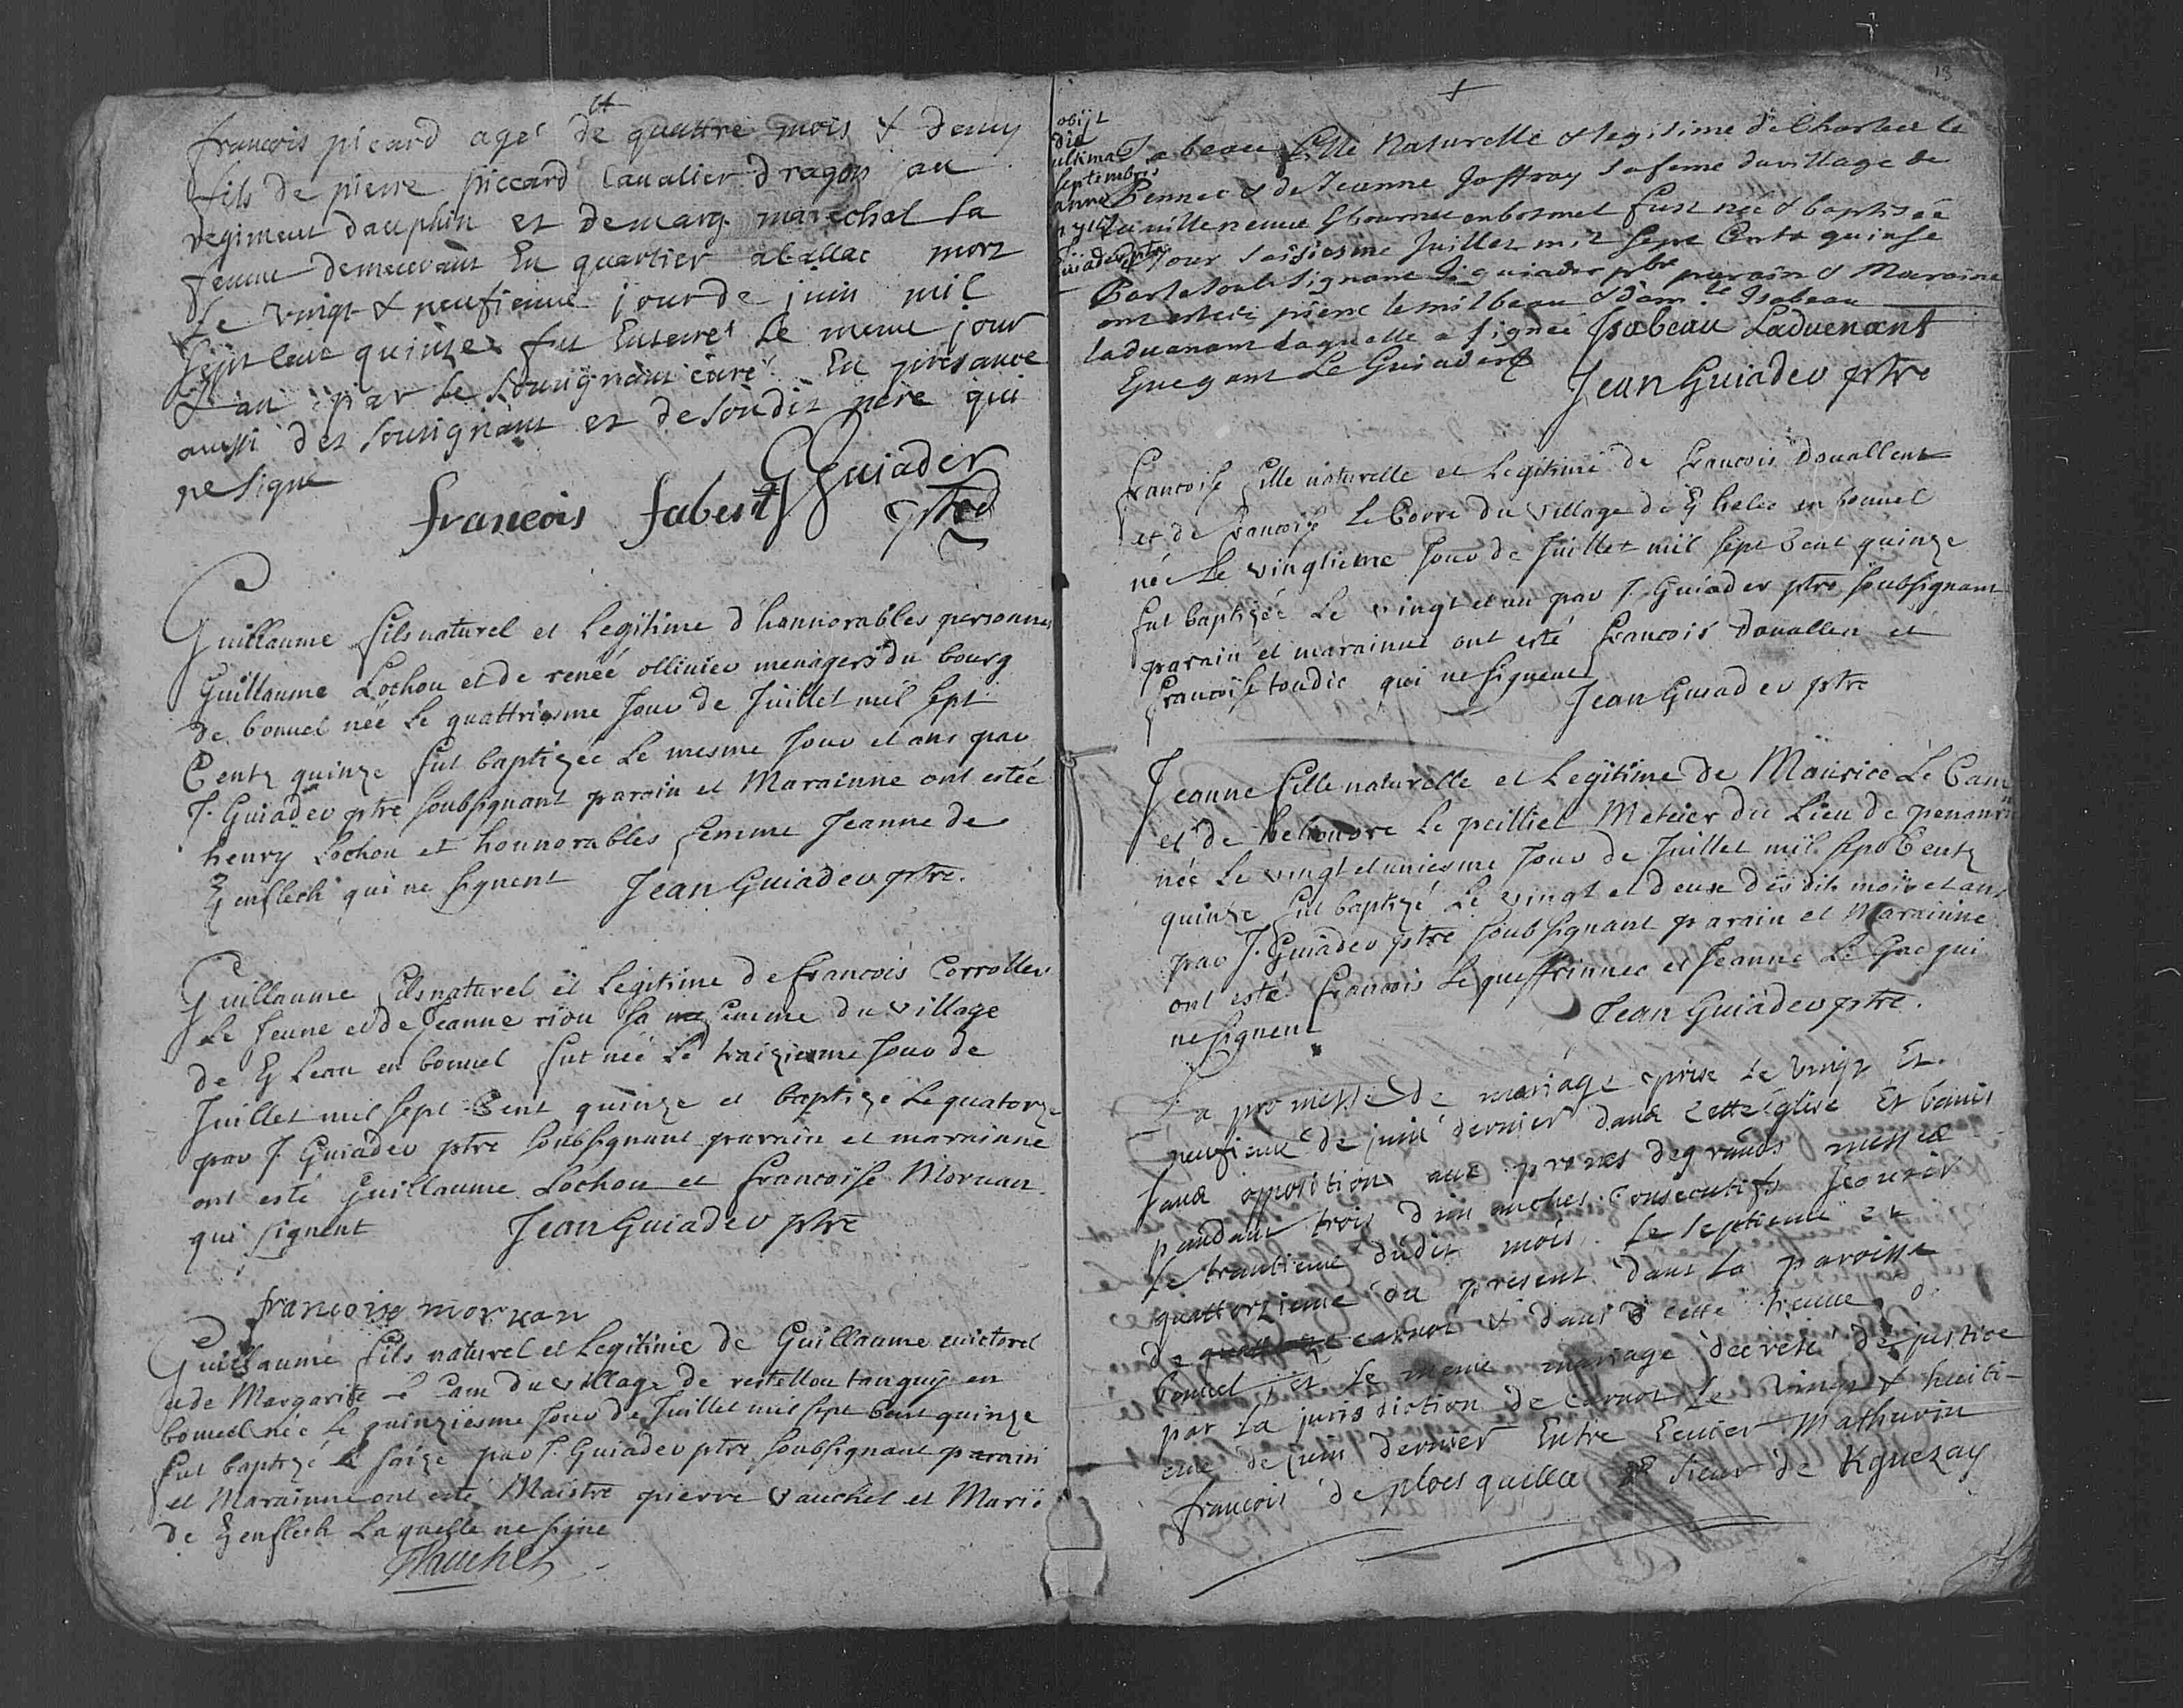 françois picard agé de quattre mois & demy
fils de pierre piccard Cavalier dragon au
regiment dauphin et de marg. marechal sa
femme demeurant En quartier a Callac mort
Le vingt & neufieme jour de juin mil
sept cent quinze fut Enterré Le meme jour
& an par Le sousignant curé En presance
aussi des sousignant et desoudit pere qui
ne signe
françois fabert G Guiader
ptre
Guillaume fils naturel et Legitime d'honnorables personnes
Guillaume Lochou et de renéé ollivier menagers du bourg
de bonuel néé Le quattriesme Jour de Juillet mil sept
Centz quinze fut baptizéé Le mesme Jour et ans par
J. Guiader ptre soubsignant parain et Marainne ont estéé
henry Lochou et honnorables femme Jeanne de
Kenflech qui ne signent Jean Guiader ptre.
Guillaume fils naturel et Legitime de francois Corroller
Le Jeune et de Jeanne riou sa femme du village
de K Lean en bonuel fut néé Le traiziesme Jour de
Juillet mil sept Cent quinze et baptizé Le quatorze
par J. Guiader ptre soubsignant parain et marainne
ont esté Guillaume Lochou et francoise Morvan
qui signent Jean Guiader ptre
francoise morvan
Guillaumé fils naturel et Legitime de Guillaume
et de Margarite Le Cam du village de restellou tanguy en
bonuel néé Le quinziesme Jour de Juillet mil sept Cent quinze
fut baptizé Le saize par J. Guiader ptre soubsignant parain
et Marainne ont esté Maistre pierre Vauchel et Marie
de Kenflech Laquelle ne signe
Vauchel
13
obijt
die
ultima
septembris
anno
1715
Guiader ptre
Isabeau fille Naturelle & legitime de Charles le
Pennec & de Jeanne Joffray sa feme du village de
la villeneuve en botmel fust née & baptisée
jour saisiesme Juillet mil sept Cents quinse
Par le soubsignant J. guiader ptre parain & Maraine
ont estéé pierre le milbeau & dam.lle Isabeau
laduenant laquelle a signéé Isabeau Laduenant
Jean Guiader ptre
francoise fille naturelle et Legitime de francois Douallen
et de francoise Le Corre du village de K helec en bonuel
néé Le vingtieme Jour de Juillet mil sept Cent quinze
fut baptizéé Le vingt et un par J. Guiader ptre soubsignant
parain et marainne ont esté francois Douallen et
francoise toudic qui ne signent
Jean Guiader ptre
Jeanne fille naturelle et Legitime de Maurice Le Cam
et de helionore Le peillier Metteier du Lieu de
néé Le vingt et uniesme Jour de Juillet mil sept Centz
quinze fut baptizé Le vingt et deuxe des dits mois et ans
par J. Guiader ptre soubsignant parain et Marainne
ont esté francois Le queffrinnec et Jeanne Le Gac qui
ne signent Jean Guiader ptre.
La promesse de mariage prise Le vingt Et
neufieme de juin dernier dans cette Eglise Et banis
sans opposition aux prones de grands messes
pandant trois dimanches Consecutifs scavoir
le trantieme dudit mois. Le septieme et
quattorzieme du present dans La paroisse
de carnot & dans cette treuve de
bonuel, et Le meme mariage decreté de justice
par La jurisdiction de Carnot Le vingt & huiti-
eme de juin dernier Entre Ecuier Mathurin
francois de ploesquellec sieur de Kguezay